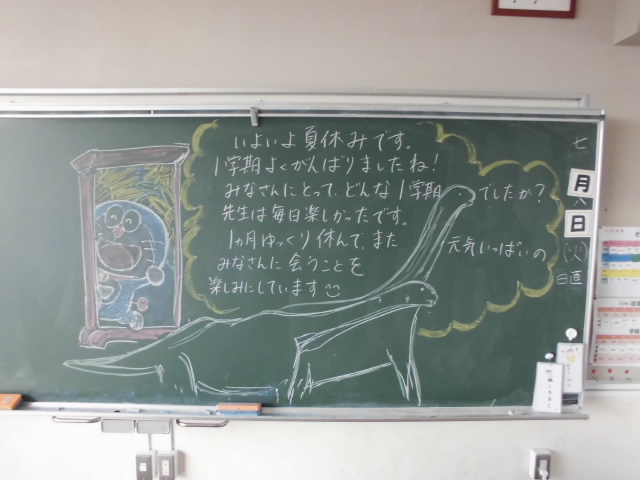 いよいよ夏休みです。
1学期よくがんばりましたね!
みなさんにとって、どんな1学期でしたか?
先生は毎日楽しかったです。
1ヵ月ゆっくり休んで、また元気いっぱいの
みなさんに会うことを
楽しみにしています
七
月
日
(火)
日直